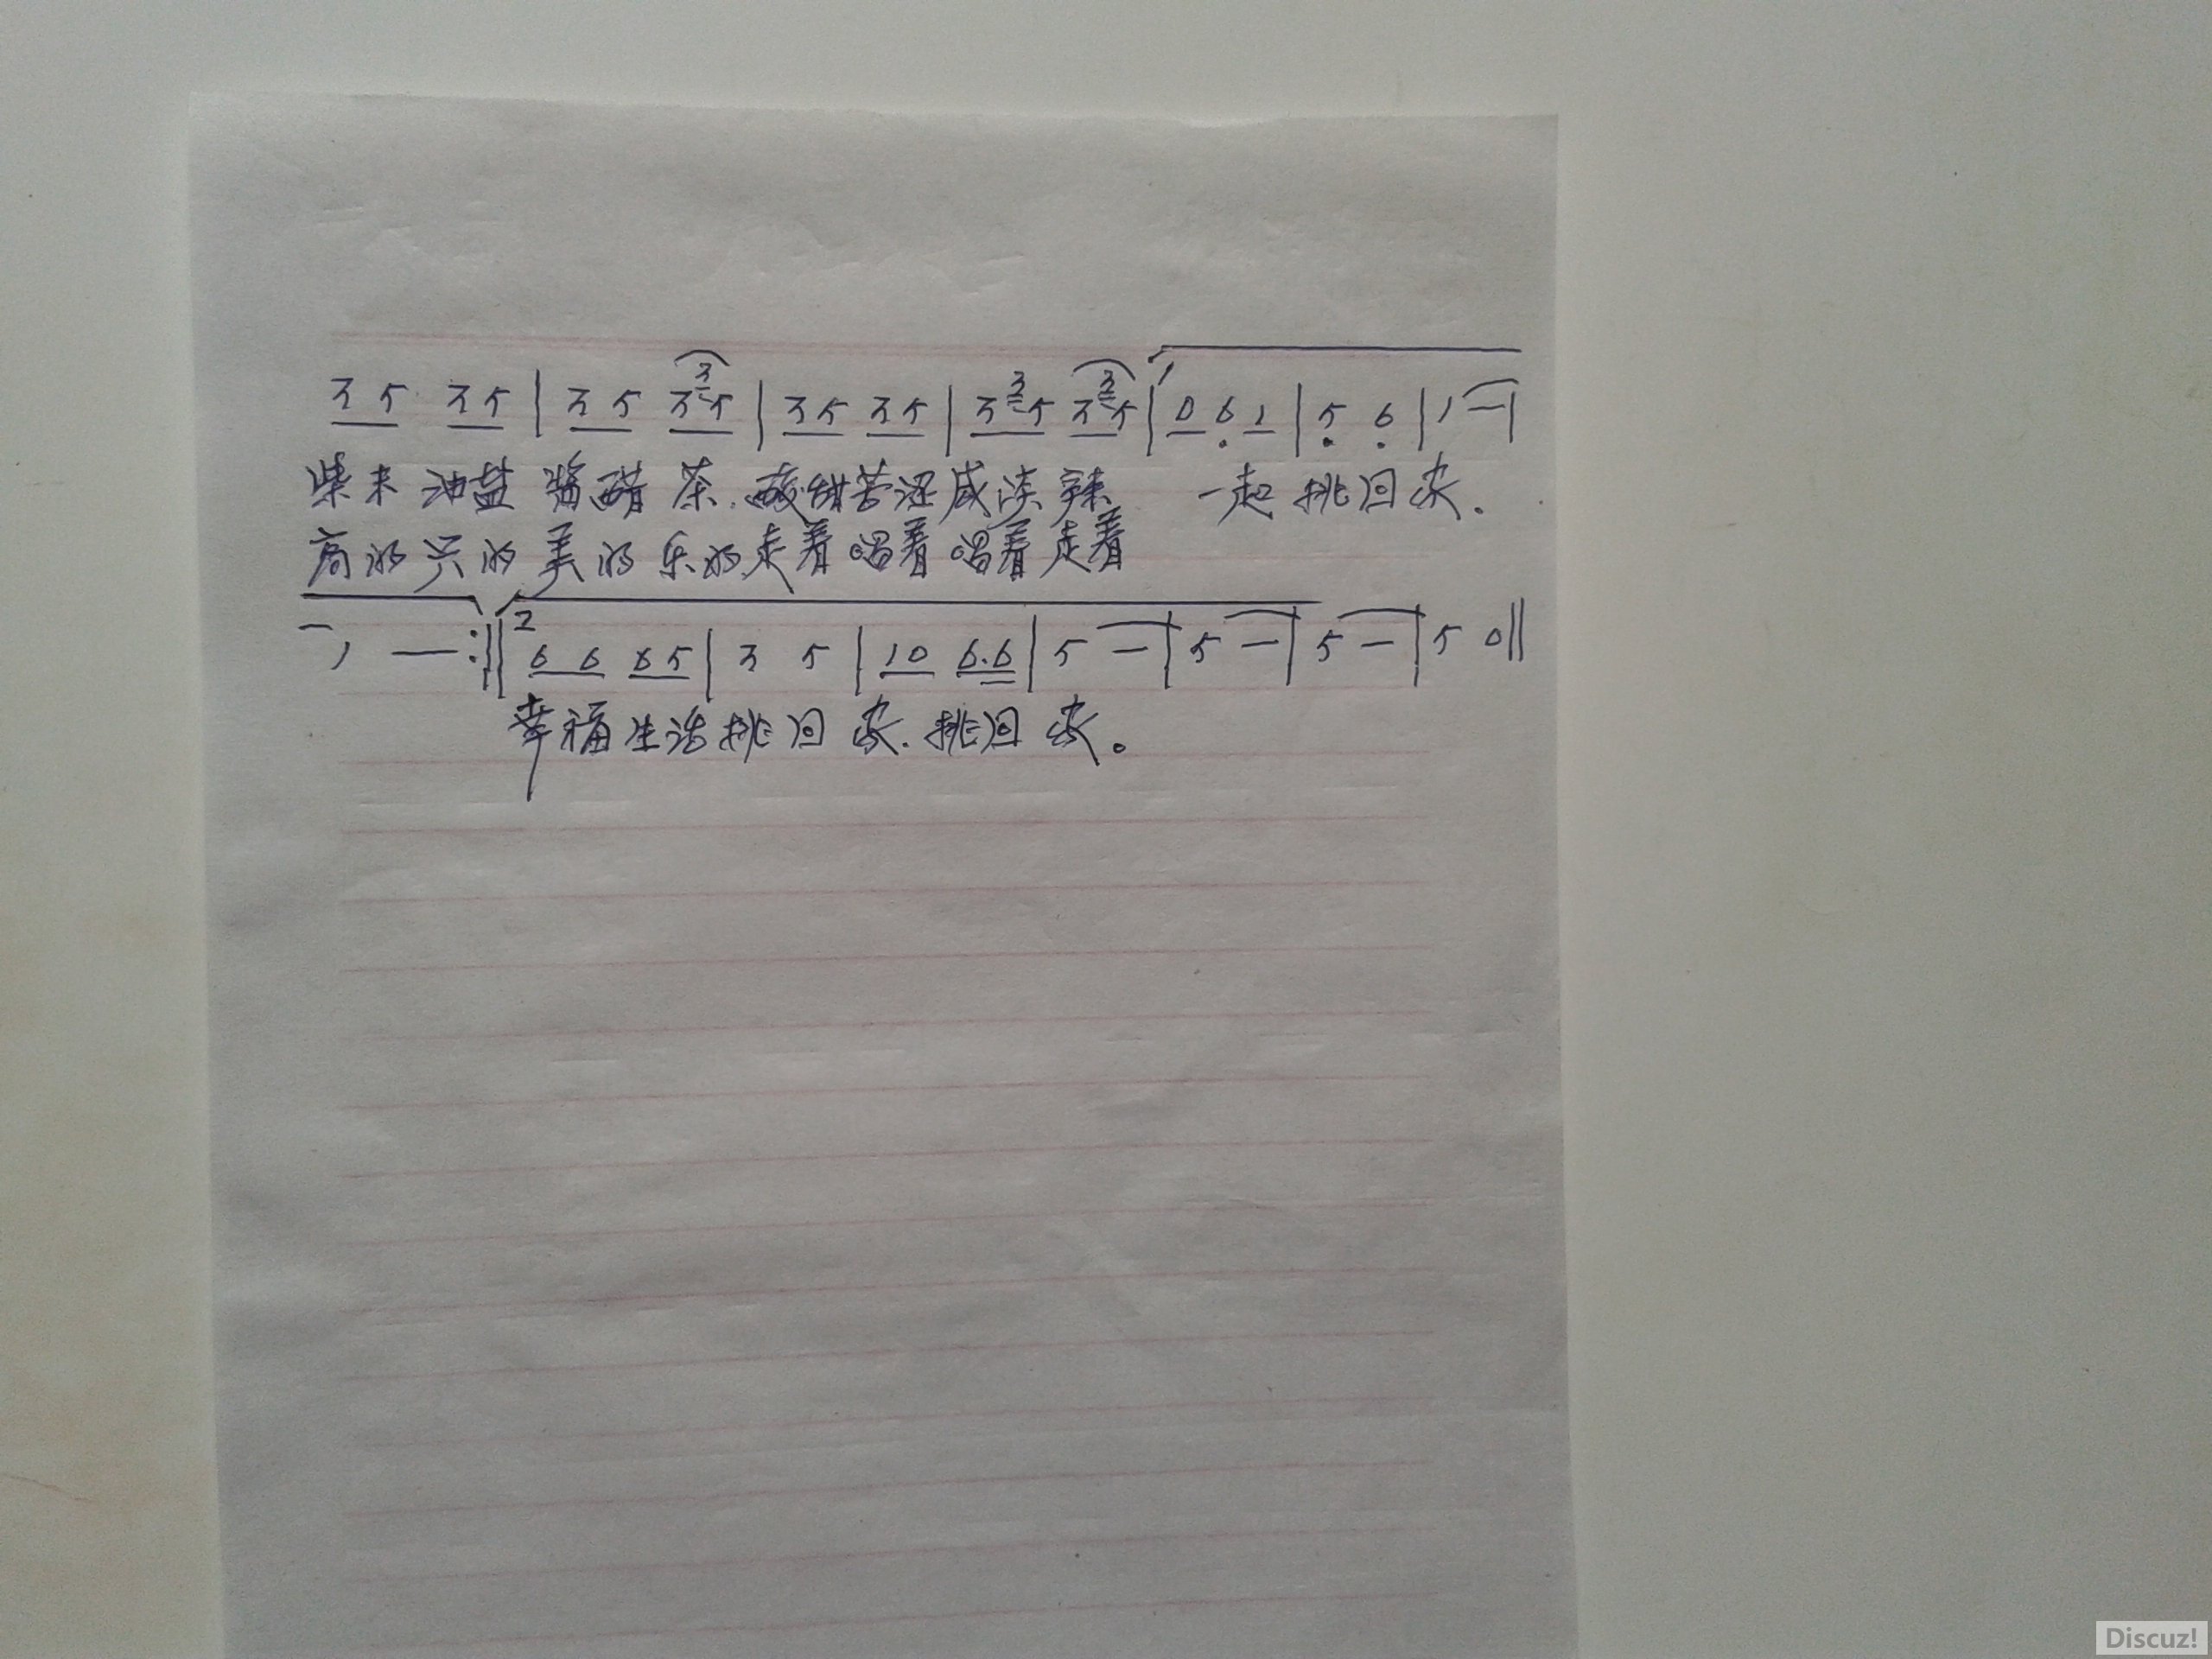 3 5 3 5 | 3 5 3 3 5 | 3 5 3 5 | 3 3 5 3 3 5 | 1 0 6 1 | 5 6 | 1 — |
柴米油盐酱醋茶.酸甜苦还咸淡辣 一起挑回家.
高的兴的美的乐的走着唱着唱着走着
1 — :|| 2 6 6 6 5 | 3 5 | 1 0 6.6 | 5 — | 5 — | 5 — | 5 0 ||
幸福生活挑回家.挑回家。
Discuz!